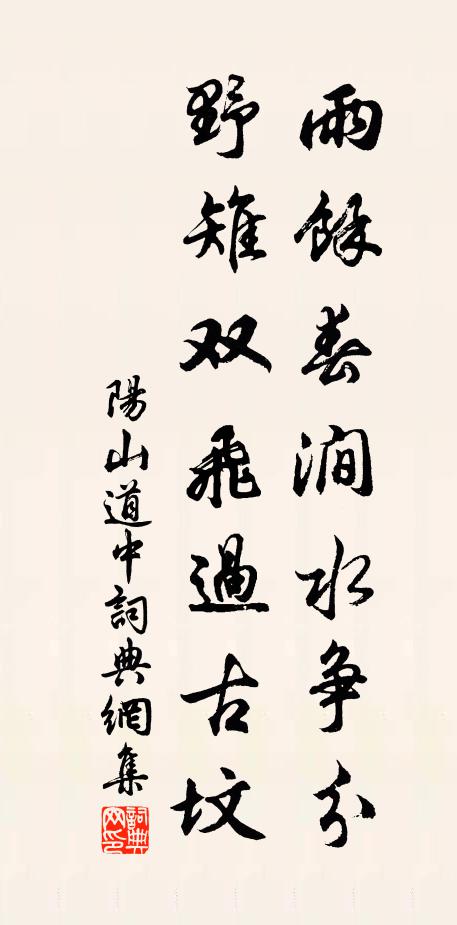 雨餘春澗水争分
野雉双飛過古坟
陽山道中詞典網集
詞典網印